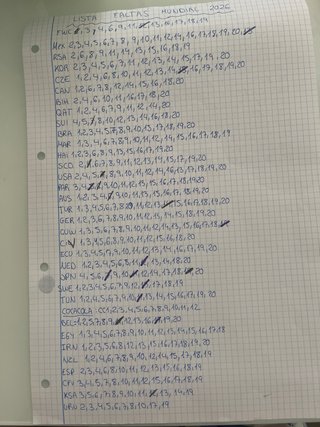 LISTA FALTAS MUNDIAL 2026
FWC 3, 4, 6, 9, 11, 13, 16, 17, 18, 19
MEX 2, 3, 4, 5, 6, 7, 8, 9, 10, 11, 12, 14, 16, 17, 18, 19, 20
RSA 2, 6, 8, 9, 11, 14, 13, 15, 16, 18, 19
KOR 2, 3, 4, 5, 6, 7, 11, 12, 13, 14, 15, 17, 19, 20
CZE 1, 2, 4, 6, 8, 10, 11, 12, 13, 14, 16, 17, 18, 19, 20
CAN 1, 2, 6, 7, 8, 12, 14, 15, 16, 18, 20
BIH 2, 4, 6, 10, 11, 16, 17, 18, 20
QAT 1, 2, 4, 6, 7, 9, 11, 12, 14, 20
SUI 4, 5, 8, 10, 12, 13, 14, 16, 18, 20
BRA 1, 2, 3, 4, 5, 7, 8, 9, 10, 15, 17, 18, 19, 20
MAR 1, 3, 4, 6, 7, 8, 9, 10, 11, 12, 14, 15, 16, 17, 18, 19
HAI 1, 2, 3, 6, 8, 9, 13, 15, 16, 17, 19, 20
SCO 2, 6, 7, 8, 9, 11, 12, 13, 14, 15, 17, 19, 20
USA 2, 4, 5, 8, 9, 10, 11, 12, 14, 16, 15, 17, 18, 19, 20
PAR 3, 4, 9, 10, 11, 12, 13, 15, 16, 17, 18, 19, 20
AUS 1, 2, 3, 4, 9, 10, 11, 13, 15, 16, 17, 18, 19, 20
TUR 1, 3, 4, 5, 6, 7, 8, 9, 11, 12, 13, 15, 16, 17, 18, 19, 20
GER 1, 2, 3, 6, 7, 8, 9, 10, 11, 12, 14, 15, 18, 19, 20
CUW 1, 3, 5, 6, 7, 8, 9, 10, 11, 12, 14, 13, 15, 16, 17, 18
CIV 1, 3, 4, 5, 6, 8, 9, 10, 11, 12, 15, 16, 18, 20
ECU 1, 3, 4, 5, 7, 9, 10, 11, 12, 13, 14, 16, 17, 19, 20
NED 1, 2, 3, 4, 5, 6, 8, 11, 13, 14, 18, 20
JPN 4, 5, 6, 9, 10, 12, 14, 17, 18, 20
SWE 1, 2, 3, 4, 5, 6, 7, 9, 12, 17, 18, 19
TUN 1, 2, 4, 5, 6, 7, 9, 13, 14, 15, 16, 17, 19, 20
COCACOLA: CC1, 2, 3, 4, 5, 6, 7, 8, 9, 10, 11, 12
BEL 1, 2, 5, 7, 8, 9, 12, 13, 16, 19, 20
EGY 1, 3, 4, 5, 6, 7, 8, 9, 10, 11, 12, 13, 14, 15, 16, 17, 18
IRN 1, 2, 3, 5, 6, 8, 12, 13, 15, 16, 17, 18, 19, 20
NZL 1, 2, 4, 6, 7, 8, 9, 10, 12, 14, 15, 17, 18, 19
ESP 2, 3, 4, 6, 8, 10, 11, 12, 13, 15, 16, 18, 19
CPV 3, 4, 5, 7, 8, 10, 11, 12, 15, 16, 17, 18, 19
KSA 3, 5, 6, 7, 8, 9, 10, 11, 13, 14, 19
URU 2, 3, 4, 5, 6, 7, 8, 10, 17, 19